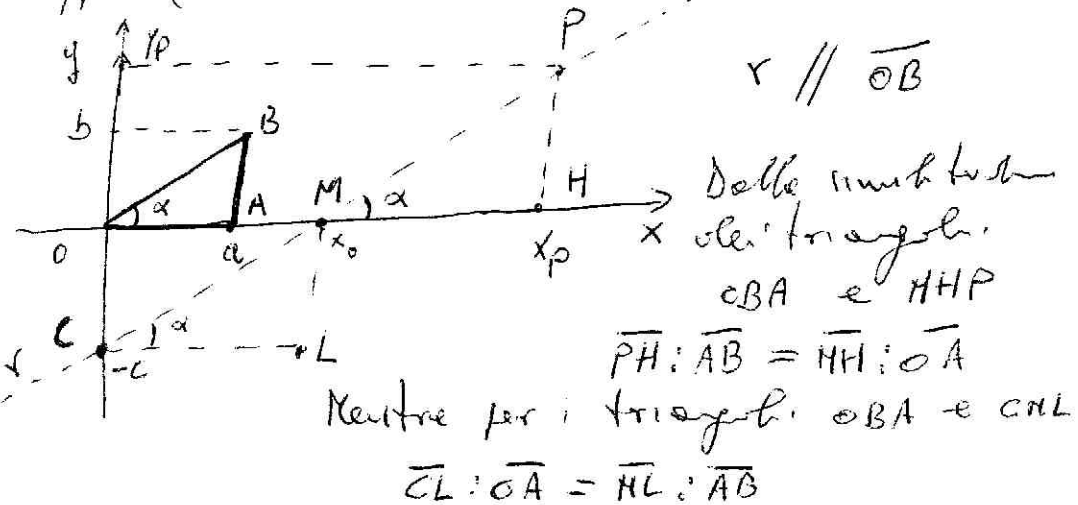 y yp P
r // OB
b B
M H
α A α Dalla similitudine
O a x₀ xp x dei triangoli
OBA e MHP
C α L
r -c
PH : AB = MH : OA
Mentre per i triangoli OBA e CML
CL : OA = ML : AB